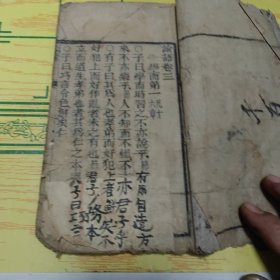 論語卷三
學而第一
○子曰學而時習之不亦說乎有朋自遠方
來不亦樂乎人不知而不慍不亦君子乎
○有子曰其爲人也孝弟而好犯上者鮮矣不
好犯上而好作亂者未之有也君子務本
立而道生孝弟也者其爲仁之本與子曰巧言
○子曰巧言令色鮮矣仁